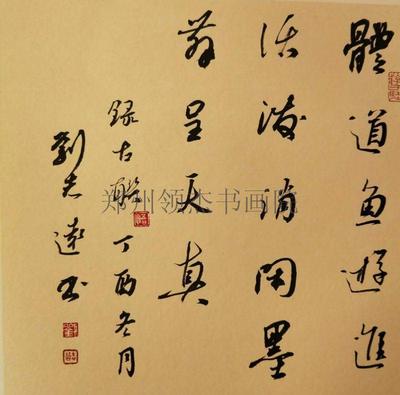 體道魚遊進
活潑消閑墨
舞呈天真
錄古聯丁酉冬月
劉志遠书
郑州领杰书画院